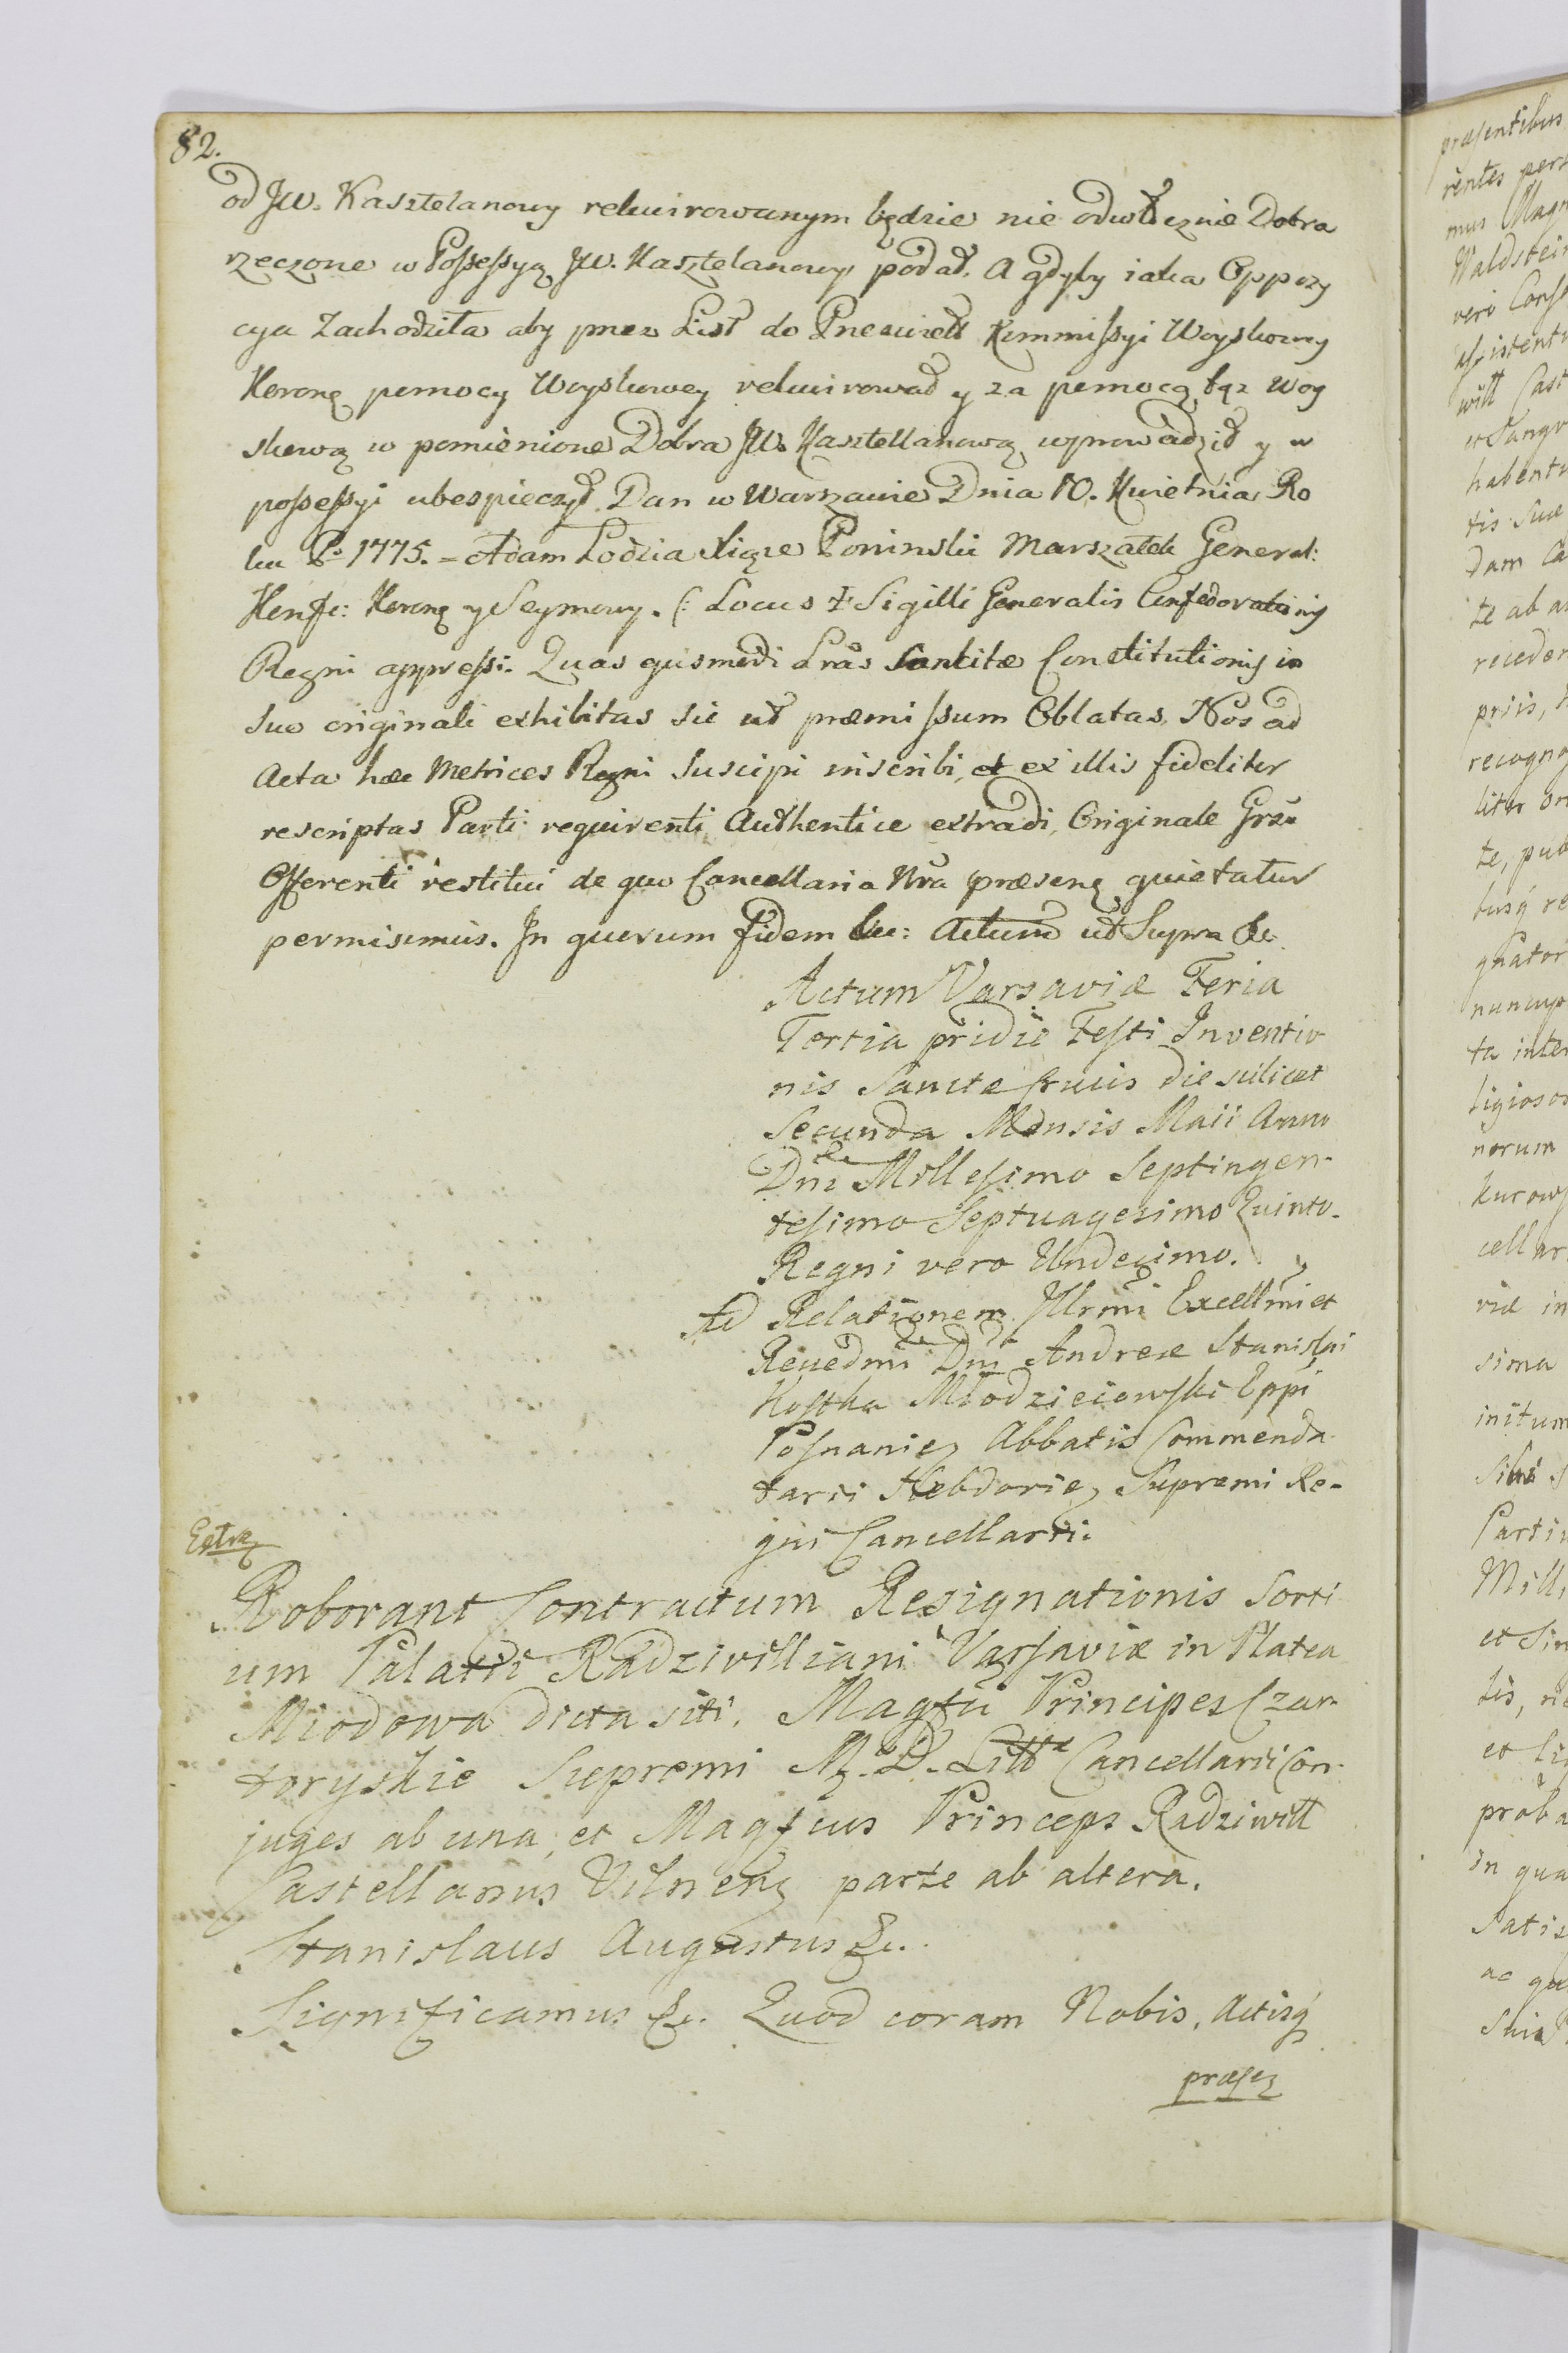 82.
od JW. Kasztelanowy rekwirowanym będzie nie odwłocznie Dobra
rzeczone w Possessyą JW. Kasztelanowy podał. A gdyby iaka Oppozy
cya Zachodziła aby przez List do Przeświett Kommissyi Woyskowey
Koronę pomocy Woyskowey rekwirował y za pomocą tąż Woy
skową w pomienione Dobra JW. Kasztellanową wprowadził y w
possessyi ubespieczył. Dan w Warszawie Dnia 10. Kwietnia Ro
ku P. 1775. = Adam Łodzia Xiąże Poninski Marszałek General:
Konfe: Koronę y Seymowy. (: Locus + Sigilli Generalis Confederationis
Regni appressi. Quas ejusmodi Lras Sancitæ Constitutionis in
suo originali exhibitas sic ut præmissum Oblatas, Nos ad
Acta hæc Metrices Regni Suscipi inscribi, et ex illis fideliter
rescriptas Parti requirenti Authentice extradi, Originale
Offerenti restitui de quo Cancellaria Nra præsenę quietatur
permisimus. In quorum fidem &c: Actum ut Supra &c.
Actum Varsaviæ Feria
Tertia pridie Festi Inventio
nis Sanctæ Crucis die scilicet
Secunda Mensis Maii Anno
Dni Millesimo Septingen-
tesimo Septuagesimo Quinto.
Regni vero Undecimo.
Ad Relationem Illrmi Excellmi et
Reuedmi Dni Andreæ Stanislai
Kostka Młodzieiowski Eppi
Posnanię Abbatis Commenda-
tarii Hebdovię Supremi Re-
gni Cancellarii.
Extrę
Roborant Contractum Resignationis Sorti
um Palatii Radzivilliani Varsaviæ in Platea
Miodowa dicta siti. Magfci Principes Czar-
toryskie Supremi M. D. Litt Cancellarii Con-
juges ab una, et Magfcus Princeps Radziwill
Castellanus Vilnenę parte ab altera.
Stanislaus Augustus &c.
Significamus &c. Quod coram Nobis, Actisq
præsę
præsentibus
rentes pers
mus Magn
Waldstein
vero Conse
assistenti
will Cast
et Sangv
habenti
tis Suæ
dam Ca
te ab a
receder
priis,
recogno
liter
te, pub
busq re
gnator
nuncup
ta inter
ligioso
norum
Kurows
cellar
viæ in
sima
initum
Partiu
Mill
et Sin
tis,
et
proba
In qua
Satis
ac